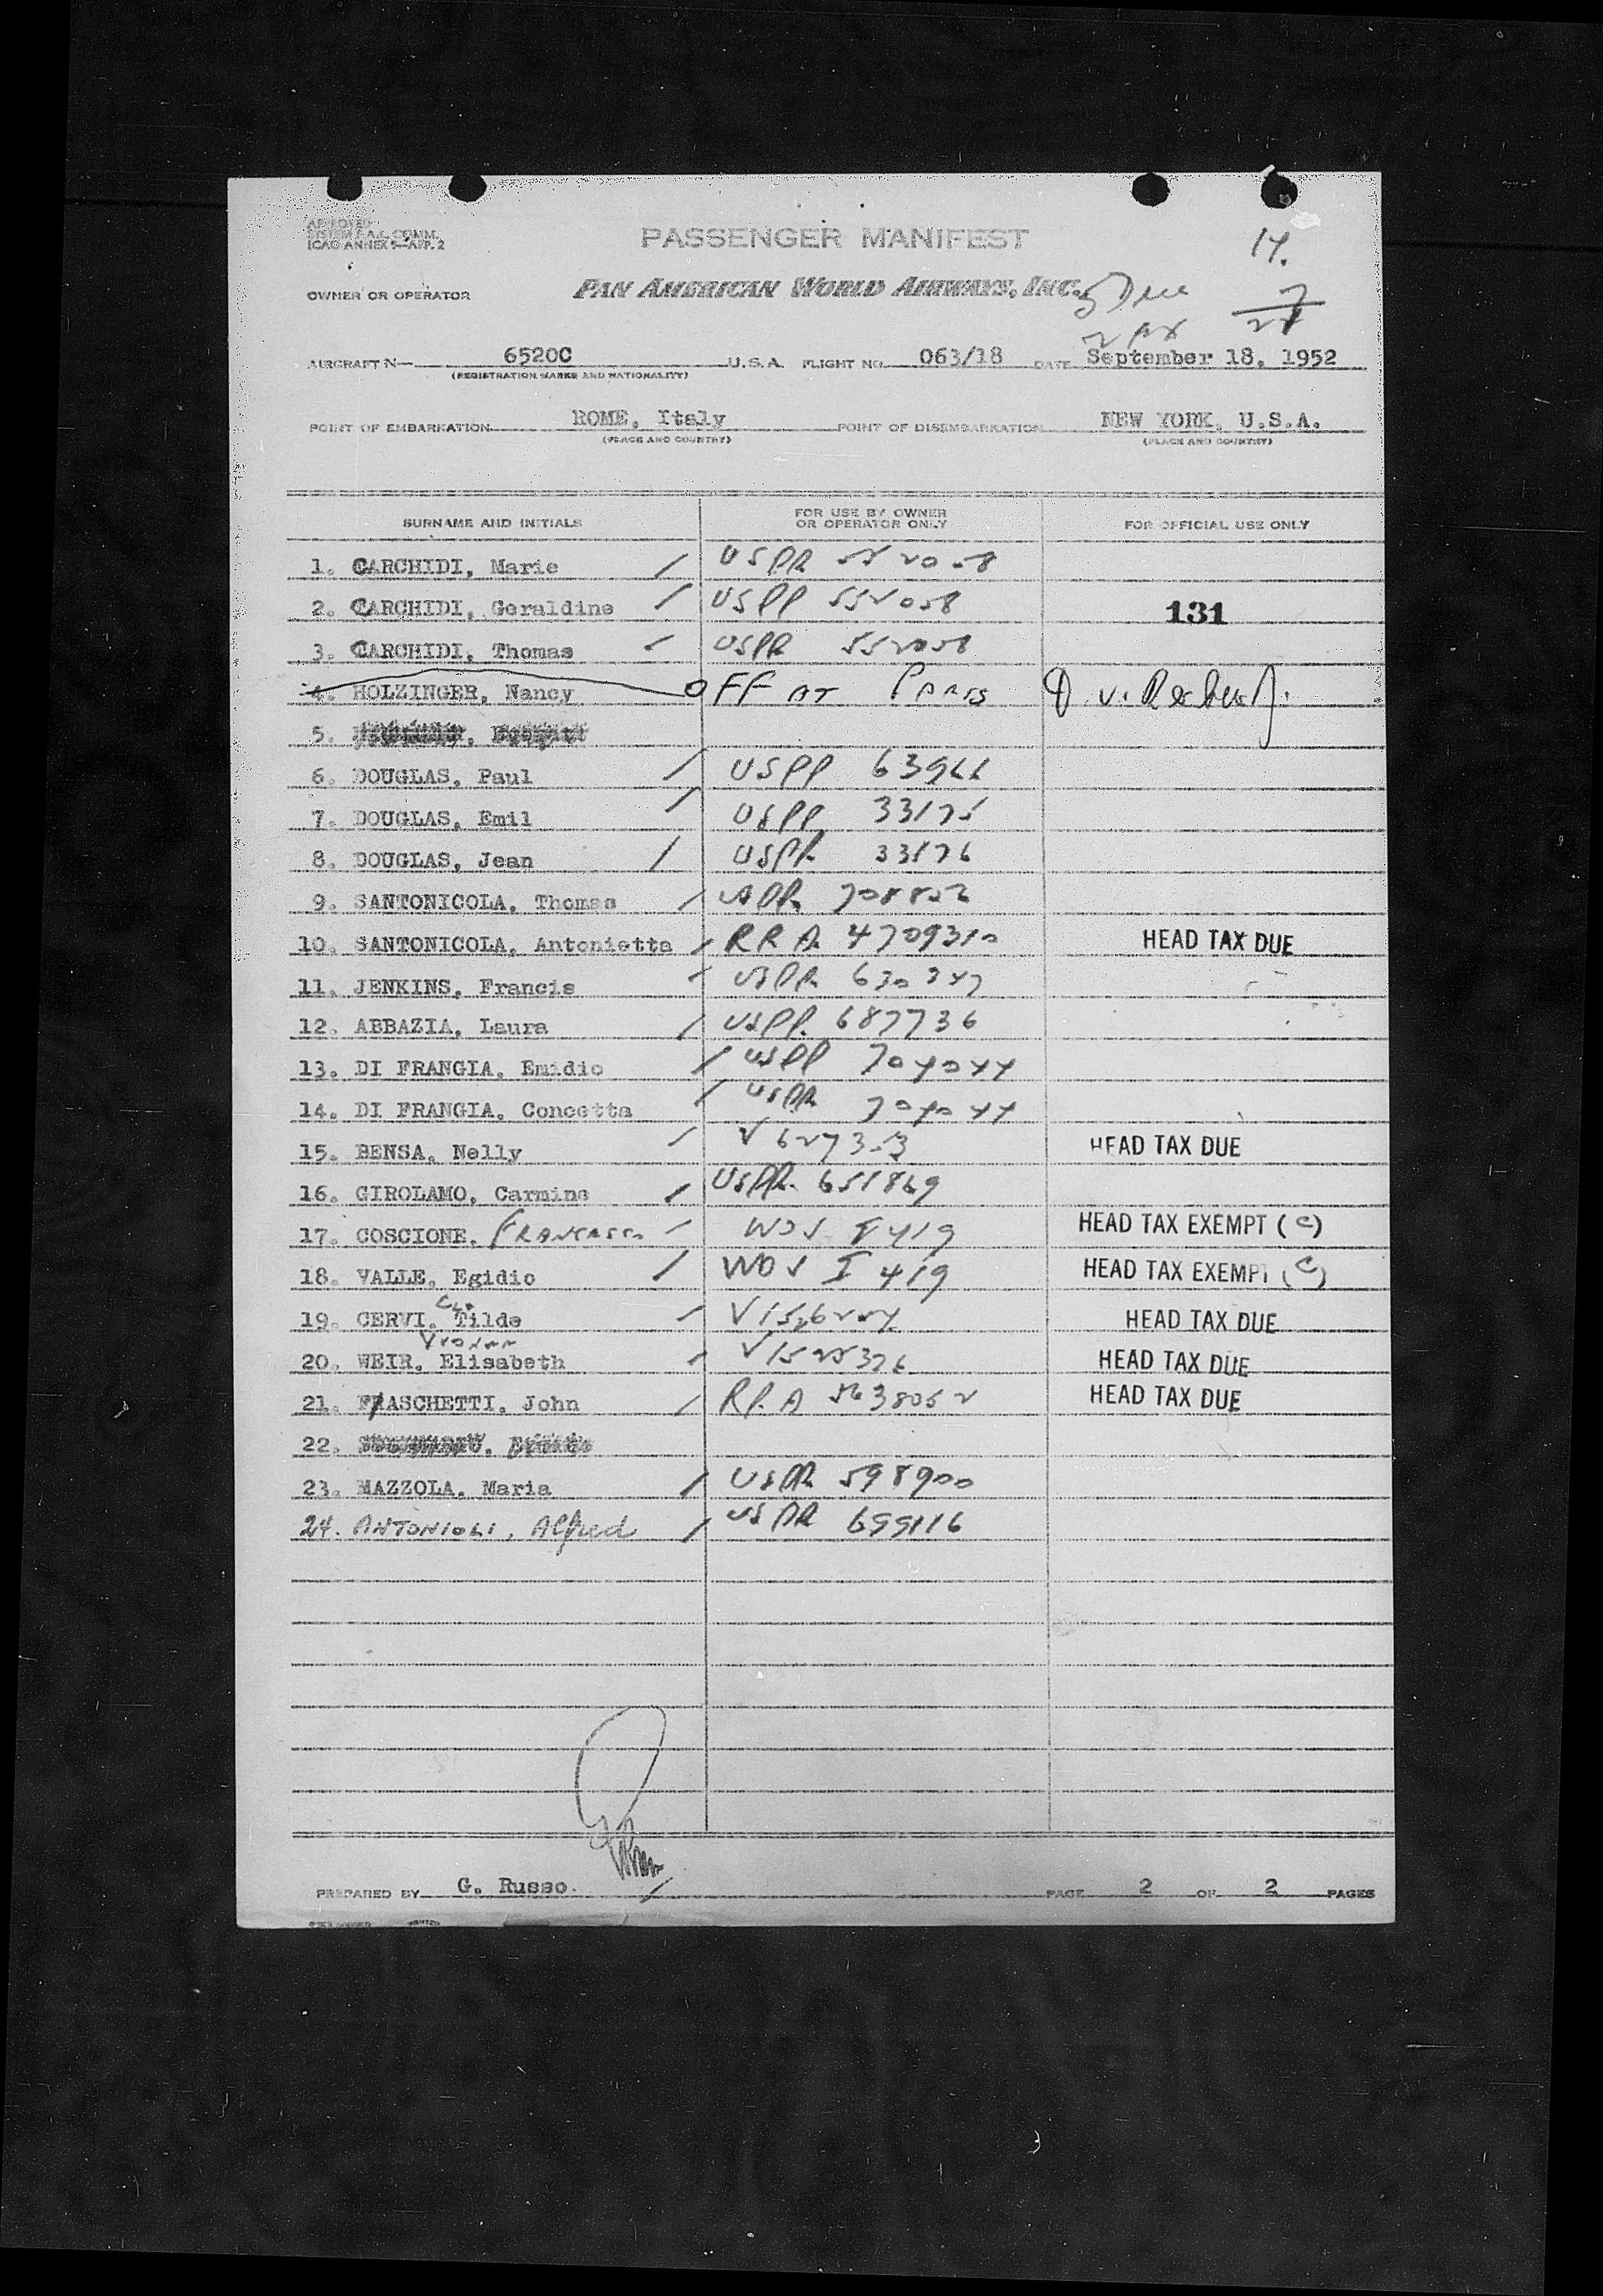 APPROVED
SYSTEM F.A.L. COMM.
ICAO ANNEX 9-APP. 2
PASSENGER MANIFEST
14.
OWNER OR OPERATOR PAN AMERICAN WORLD AIRWAYS, INC.
5 Due 7
2 ex 21
AIRCRAFT N— 6520C U.S.A. FLIGHT NO. 063/18 DATE September 18, 1952
(REGISTRATION MARKS AND NATIONALITY)
POINT OF EMBARKATION ROME, Italy POINT OF DISEMBARKATION NEW YORK, U.S.A.
(PLACE AND COUNTRY) (PLACE AND COUNTRY)
SURNAME AND INITIALS FOR USE BY OWNER OR OPERATOR ONLY FOR OFFICIAL USE ONLY
1. CARCHIDI, Marie / USPP 552058
2. CARCHIDI, Geraldine / USPP 552058 131
3. CARCHIDI, Thomas / USPP 552058
4. HOLZINGER, Nancy OFF AT PARIS
5.
6. DOUGLAS, Paul / USPP 63966
7. DOUGLAS, Emil / USPP 33175
8. DOUGLAS, Jean / USPP 33176
9. SANTONICOLA, Thomas / USPP
10. SANTONICOLA, Antonietta / RRA. 4709310 HEAD TAX DUE
11. JENKINS, Francis / USPP 630347
12. ABBAZIA, Laura / USPP. 687736
13. DI FRANGIA, Emidio / USPP 704044
14. DI FRANGIA, Concetta / USPP 704044
15. BENSA, Nelly / V 627353 HEAD TAX DUE
16. GIROLAMO, Carmine / USPP. 651869
17. COSCIONE, / WOV I 419 HEAD TAX EXEMPT (C)
18. VALLE, Egidio / WOV I 419 HEAD TAX EXEMPT (C)
19. CERVI, Tilde / HEAD TAX DUE
20. WEIR, Elisabeth / V1525326 HEAD TAX DUE
21. FRASCHETTI, John / RRA 5638052 HEAD TAX DUE
22.
23. MAZZOLA, Maria / USPP 598900
24. ANTONIOLI, Alfred / USPP 699116
PREPARED BY G. Russo. PAGE 2 OF 2 PAGES